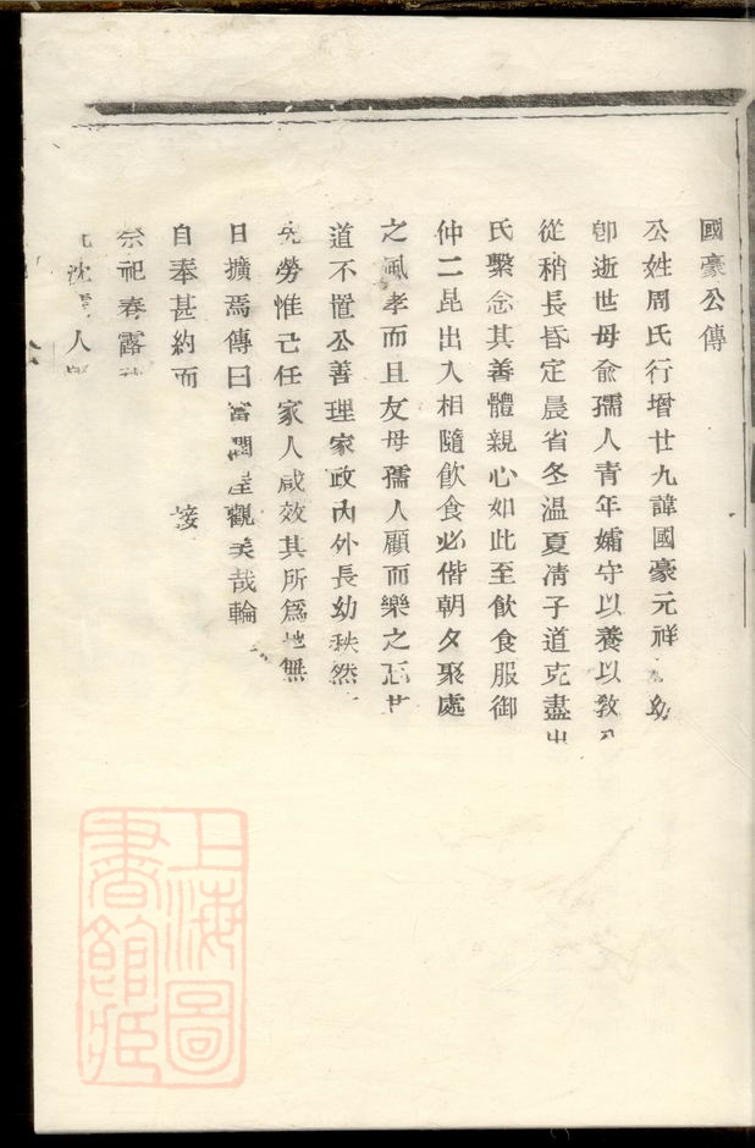 國豪公傳
公姓周氏行增廿九諱國豪元祥幼
卽逝世母兪孺人靑年孀守以養以敎
從稍長昏定晨省冬温夏凊子道克盡
氏繫念其善體親心如此至飮食服御
仲二昆出入相隨飮食必偕朝夕聚處
之風孝而且友母孺人顧而樂之
道不置公善理家政內外長幼秩然
先勞惟己任家人咸效其所爲地無
日擴焉傳曰富潤屋觀美哉輪
自奉甚約而 接
祀春露
沈人
上海圖
書館藏